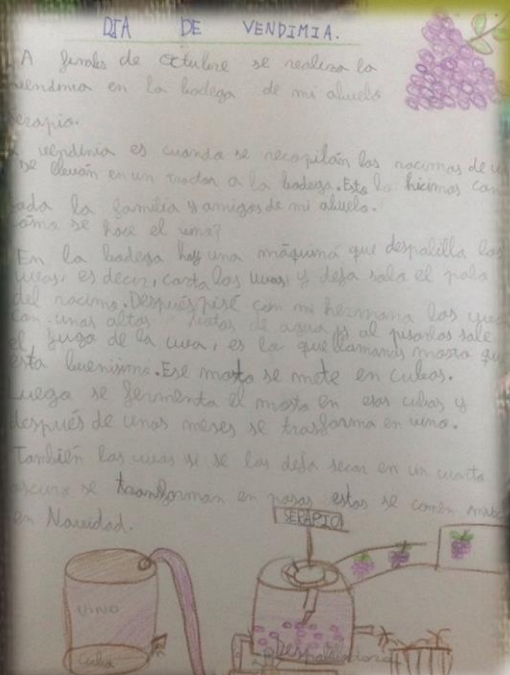 DIA DE VENDIMIA.
A finales de octubre se realiza la
vendimia en la bodega de mi abuelo
Serapio.
vendimia es cuando se recopilan los racimos de
se llevan en un tractor a la bodega. Esto lo hicimos con
toda la familia y amigos de mi abuelo.
Cómo se hace el vino?
En la bodega hay una máquina que despalilla las
uvas, es decir, corta las uvas y deja solo el palo
del racimo. Después pisé con mi hermana las uvas
con unas altas de agua y al pisarlas sale
el jugo de la uva, es lo que llamamos mosto que
está buenísimo. Ese mosto se mete en cubas.
Luego se fermenta el mosto en esas cubas y
después de unos meses se trasforma en vino.
También las uvas si se las deja secar en un cuarto
oscuro se transforman en pasas estas se comen
en Navidad.
SERAPIO
VINO
Cuba
Despalilladora